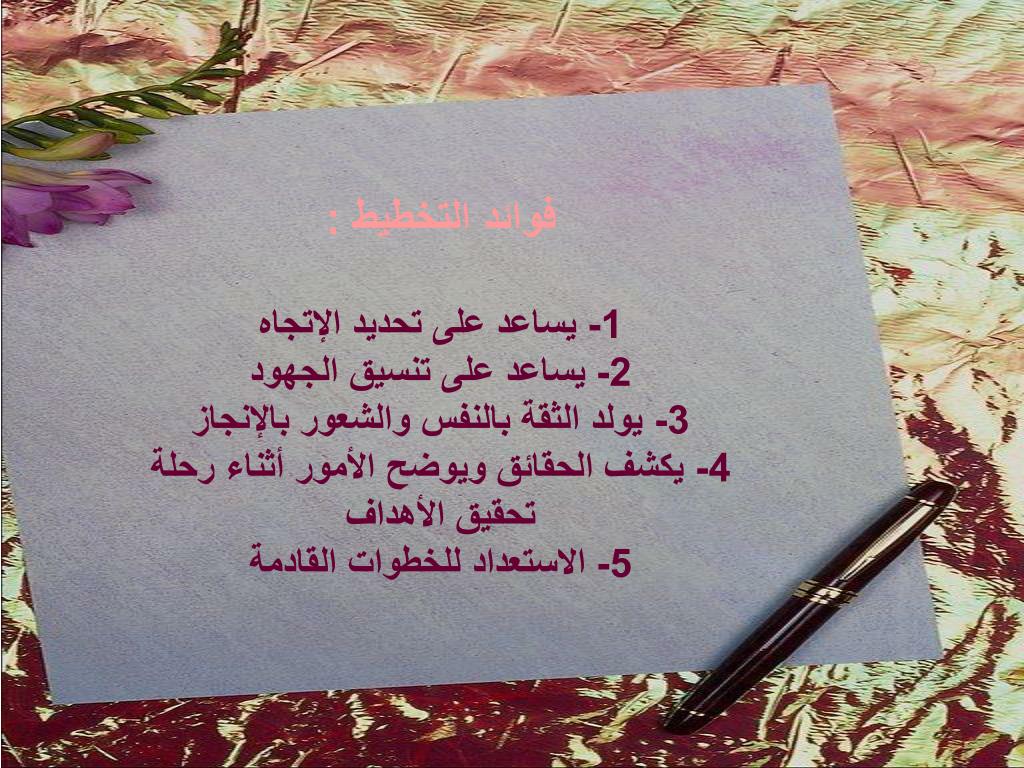 فوائد التخطيط :
1- يساعد على تحديد الإتجاه
2- يساعد على تنسيق الجهود
3- يولد الثقة بالنفس والشعور بالإنجاز
4- يكشف الحقائق ويوضح الأمور أثناء رحلة
تحقيق الأهداف
5- الاستعداد للخطوات القادمة